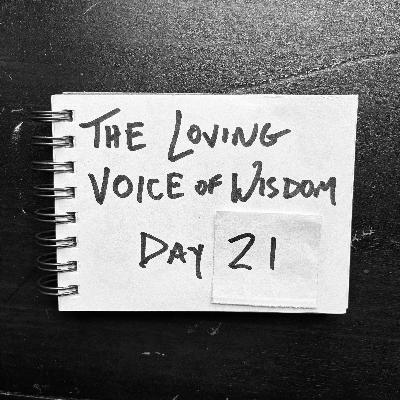 THE LOVING
VOICE OF WISDOM
DAY 21